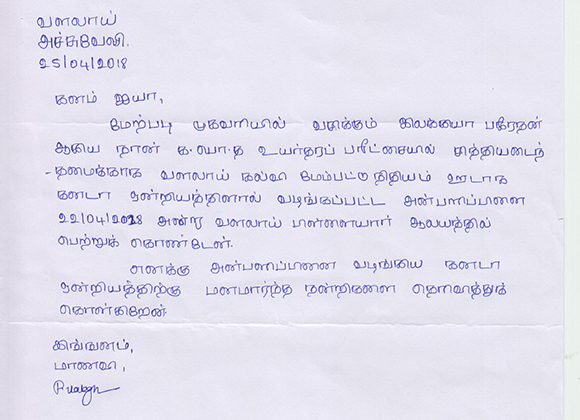 வளலாய்
அச்சுவேலி.
25/04/2018
கனம் ஐயா,
மேற்படி முகவரியில் வசிக்கும் பகீரதன்
ஆகிய நான் க.பொ.த உயர்தரப் பரீட்சையில் சித்தியடைந்
- தமைக்காக வளலாய் கல்வி மேம்பட்டு நிதியம் ஊடாக
கனடா ஒன்றியத்தினால் வழங்கப்பட்ட அன்பளிப்பினை
22/04/2018 அன்று வளலாய் பிள்ளையார் ஆலயத்தில்
பெற்றுக் கொண்டேன்.
எனக்கு அன்பளிப்பினை வழங்கிய கனடா
ஒன்றியத்திற்கு மனமார்ந்த நன்றிகளை தெரிவித்துக்
கொள்கிறேன்.
இங்ஙனம்,
மாணவி,